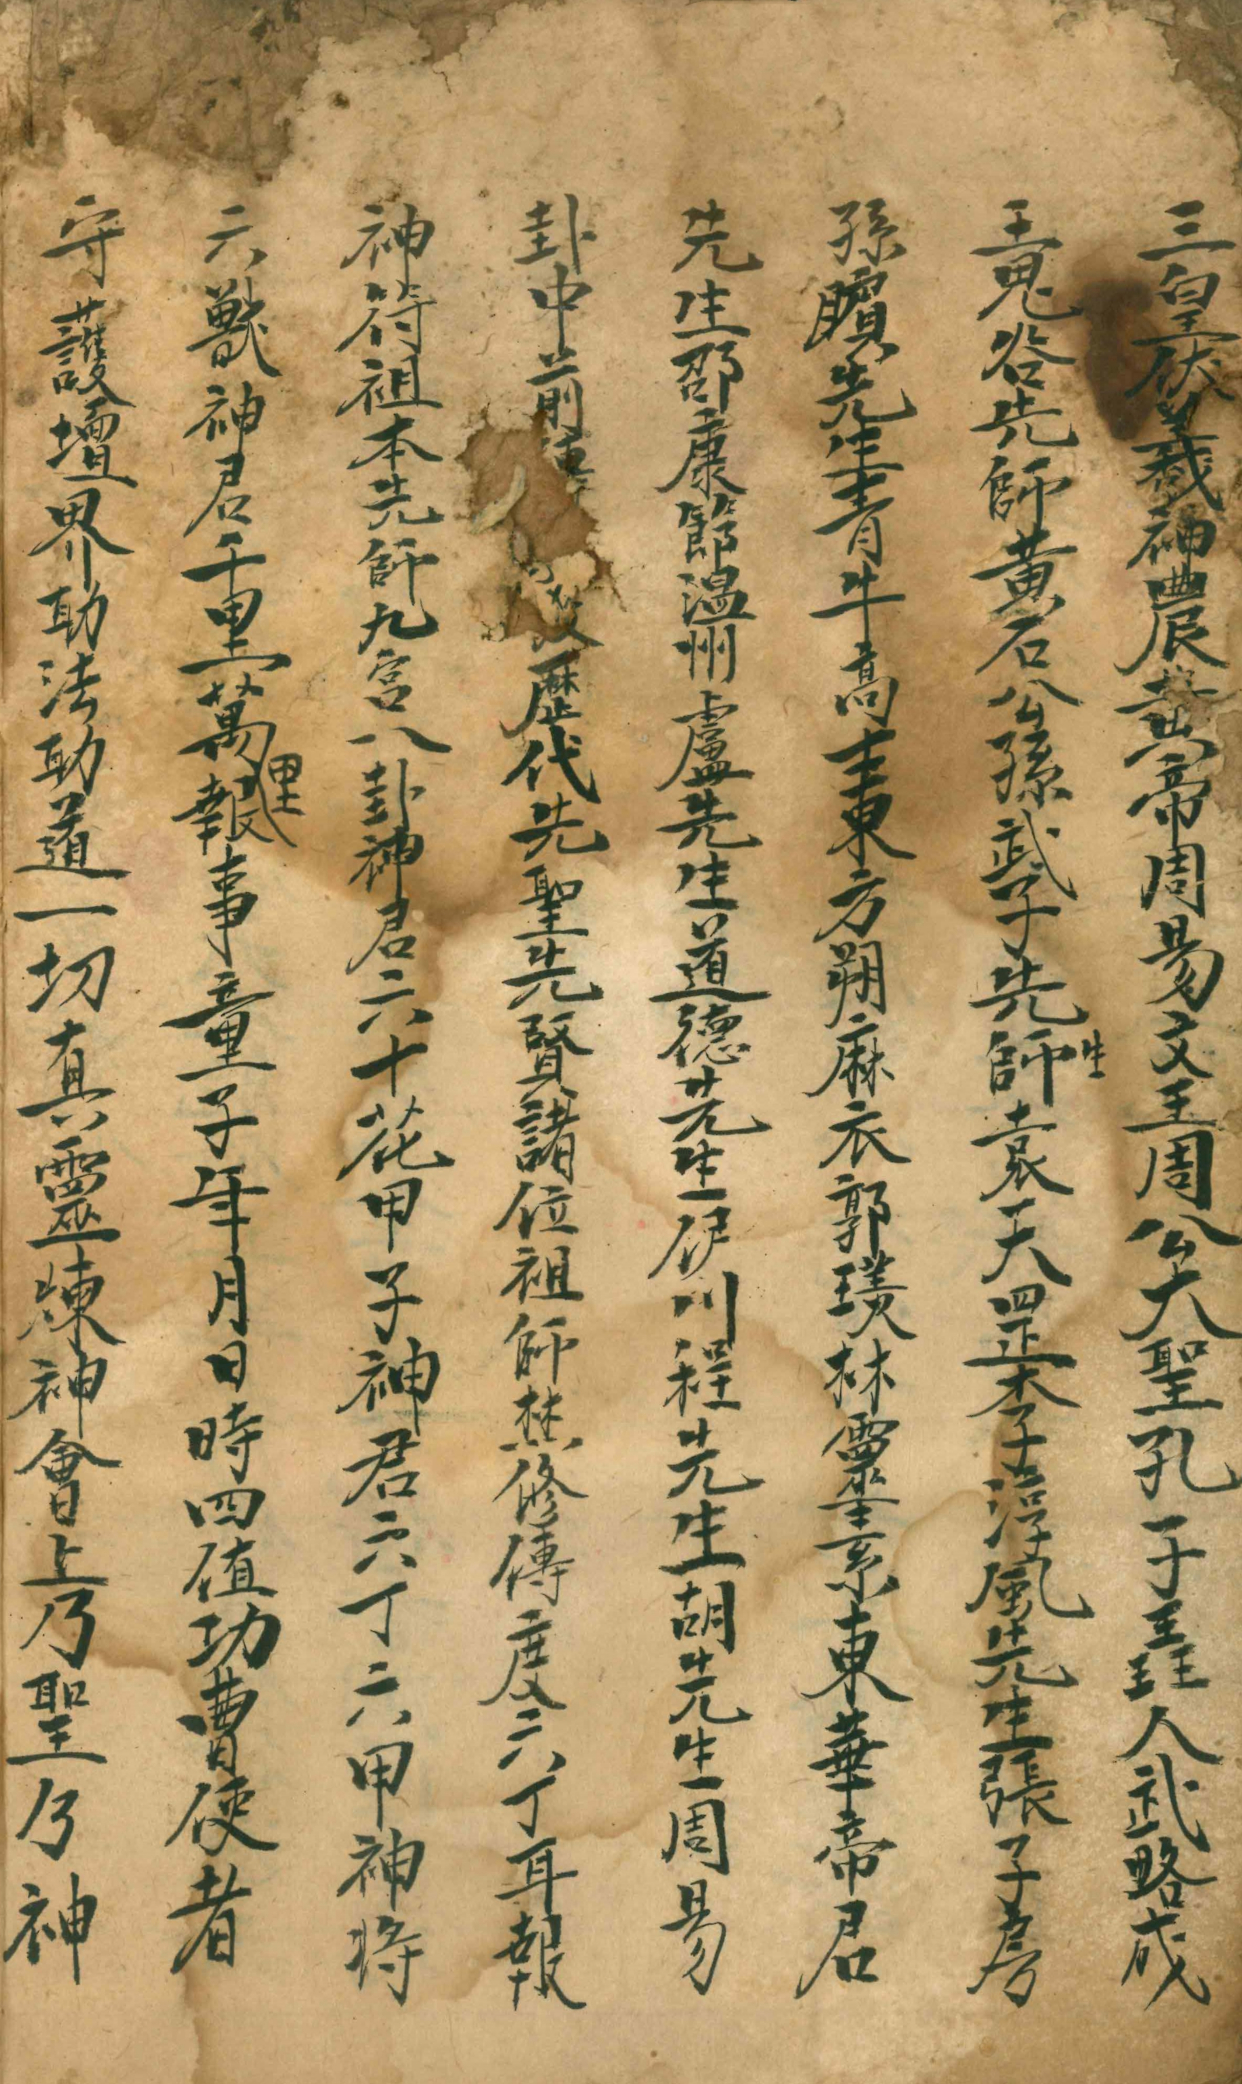 三皇伏羲神農黃帝周易文王周公大聖孔子聖人武略成
王鬼谷先師黃石公孫武子先師生袁天罡李淳風先生張子房
孫臏先生青牛高士東方朔麻衣郭璞林靈素東華帝君
先生邵康節溫州盧先生道德先生伊川程先生胡先生周易
卦中前歷代先聖先賢諸位祖師焚修傳度六丁耳報
神符祖本先師九宮八卦神君六十花甲子神君六丁六甲神將
六獸神君千里萬里報事童子年月日時四值功曹使者
守護壇界助法助道一切真靈煉神會上乃聖乃神